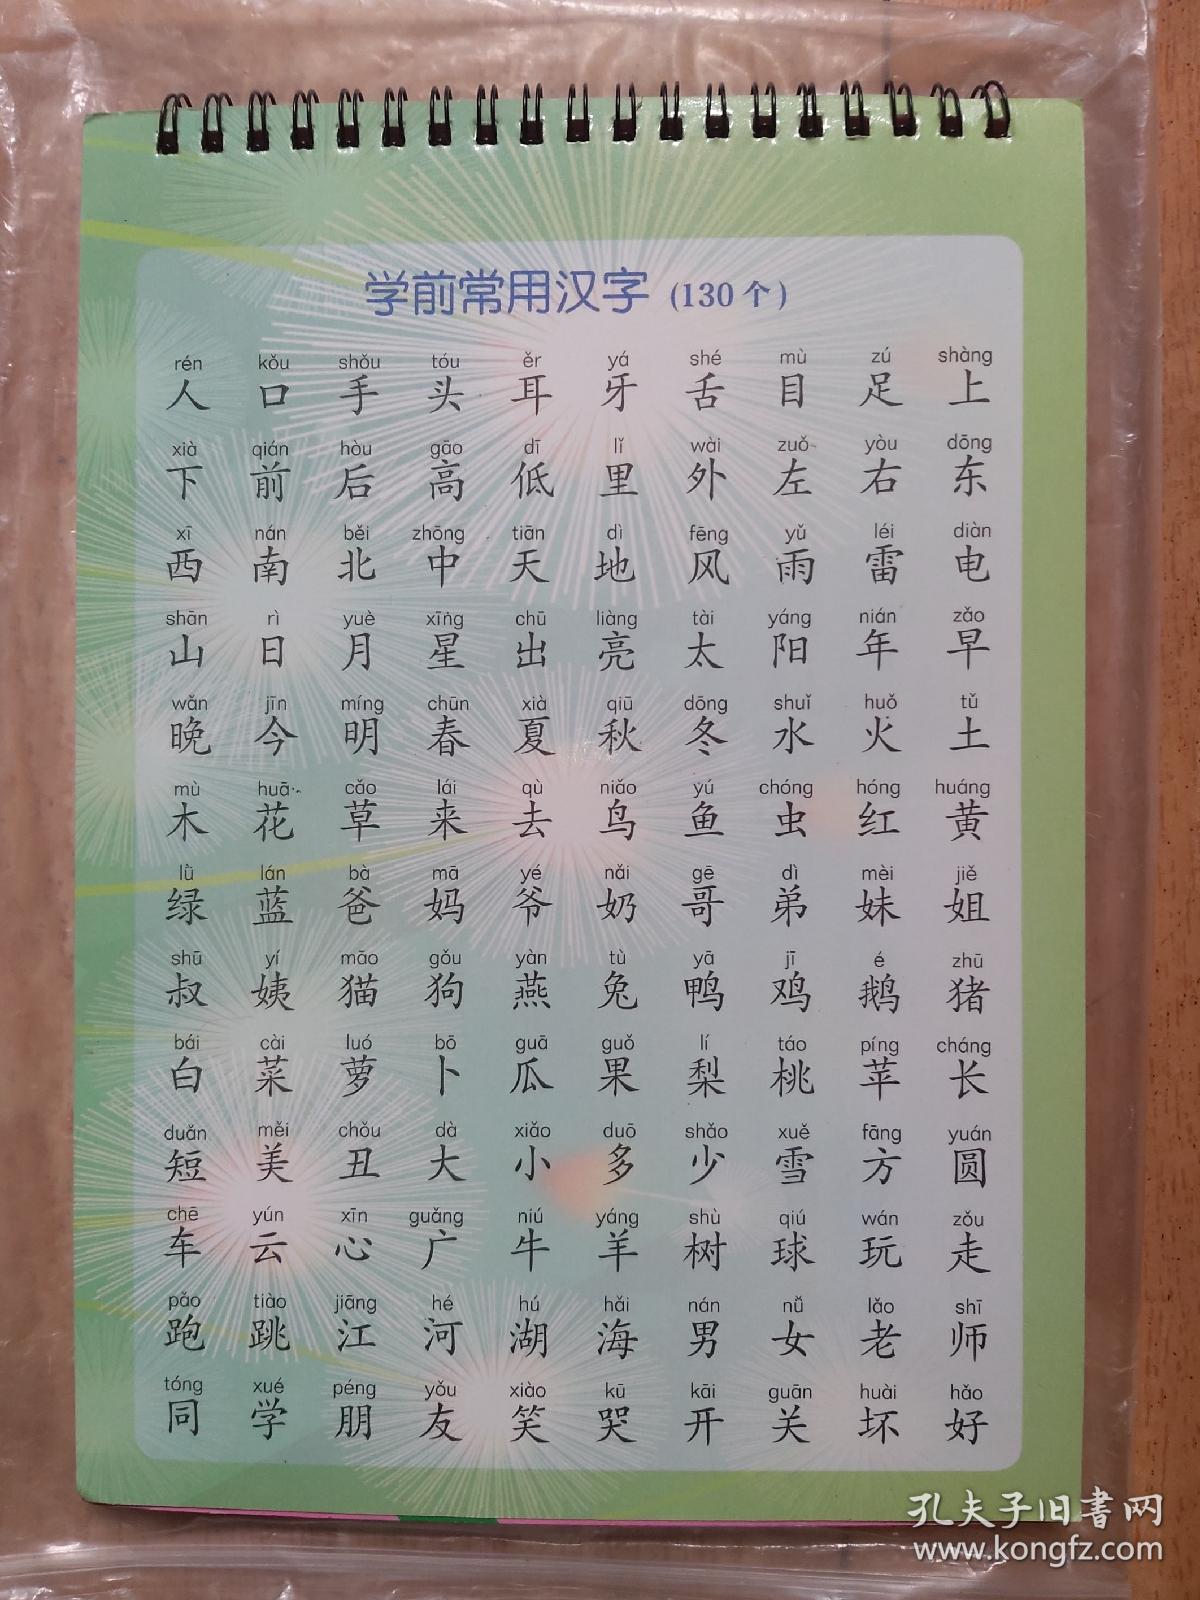 学前常用汉字 (130个)
rén kǒu shǒu tóu ěr yá shé mù zú shàng
人 口 手 头 耳 牙 舌 目 足 上
xià qián hòu gāo dī lǐ wài zuǒ yòu dōng
下 前 后 高 低 里 外 左 右 东
xī nán běi zhōng tiān dì fēng yǔ léi diàn
西 南 北 中 天 地 风 雨 雷 电
shān rì yuè xīng chū liàng tài yáng nián zǎo
山 日 月 星 出 亮 太 阳 年 早
wǎn jīn míng chūn xià qiū dōng shuǐ huǒ tǔ
晚 今 明 春 夏 秋 冬 水 火 土
mù huā cǎo lái qù niǎo yú chóng hóng huáng
木 花 草 来 去 鸟 鱼 虫 红 黄
lǜ lán bà mā yé nǎi gē dì mèi jiě
绿 蓝 爸 妈 爷 奶 哥 弟 妹 姐
shū yí māo gǒu yàn tù yā jī é zhū
叔 姨 猫 狗 燕 兔 鸭 鸡 鹅 猪
bái cài luó bō guā guǒ lí táo píng cháng
白 菜 萝 卜 瓜 果 梨 桃 苹 长
duǎn měi chǒu dà xiǎo duō shǎo xuě fāng yuán
短 美 丑 大 小 多 少 雪 方 圆
chē yún xīn guǎng niú yáng shù qiú wán zǒu
车 云 心 广 牛 羊 树 球 玩 走
pǎo tiào jiāng hé hú hǎi nán nǚ lǎo shī
跑 跳 江 河 湖 海 男 女 老 师
tóng xué péng yǒu xiào kū kāi guān huài hǎo
同 学 朋 友 笑 哭 开 关 坏 好
孔夫子旧書网
www.kongfz.com